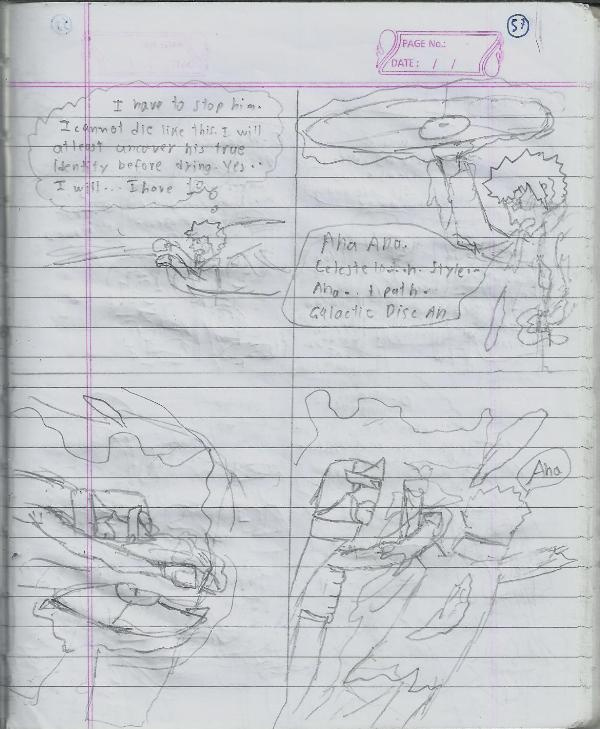 57
PAGE No.:
DATE: / /
I have to stop him.
I cannot die like this. I will
atleast uncover his true
identity before dying. Yes..
I will... I have
Aha Aha.
Style..
Aha.. path.
Galactic Disc An
Aha